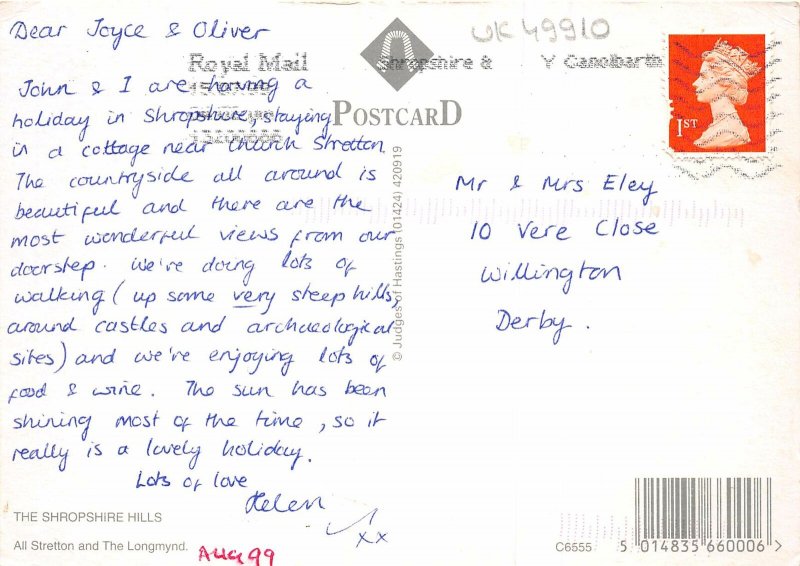 Dear Joyce & Oliver
John & I are having a
holiday in Shropshire, staying
in a cottage near Church Stretton.
The countryside all around is
beautiful and there are the
most wonderful views from our
doorstep. We're doing lots of
walking (up some very steep hills,
around castles and archaeological
sites) and we're enjoying lots of
food & wine. The sun has been
shining most of the time, so it
really is a lovely holiday.
Lots of love
Helen
xx
THE SHROPSHIRE HILLS
All Stretton and The Longmynd.
AUG 99
Royal Mail
Shropshire & Y Canolbarth
POSTCARD
© Judges of Hastings (01424) 420919
UK 49910
1ST
Mr & Mrs Eley
10 Vere Close
Willington
Derby.
C6555
5 014835 660006 >